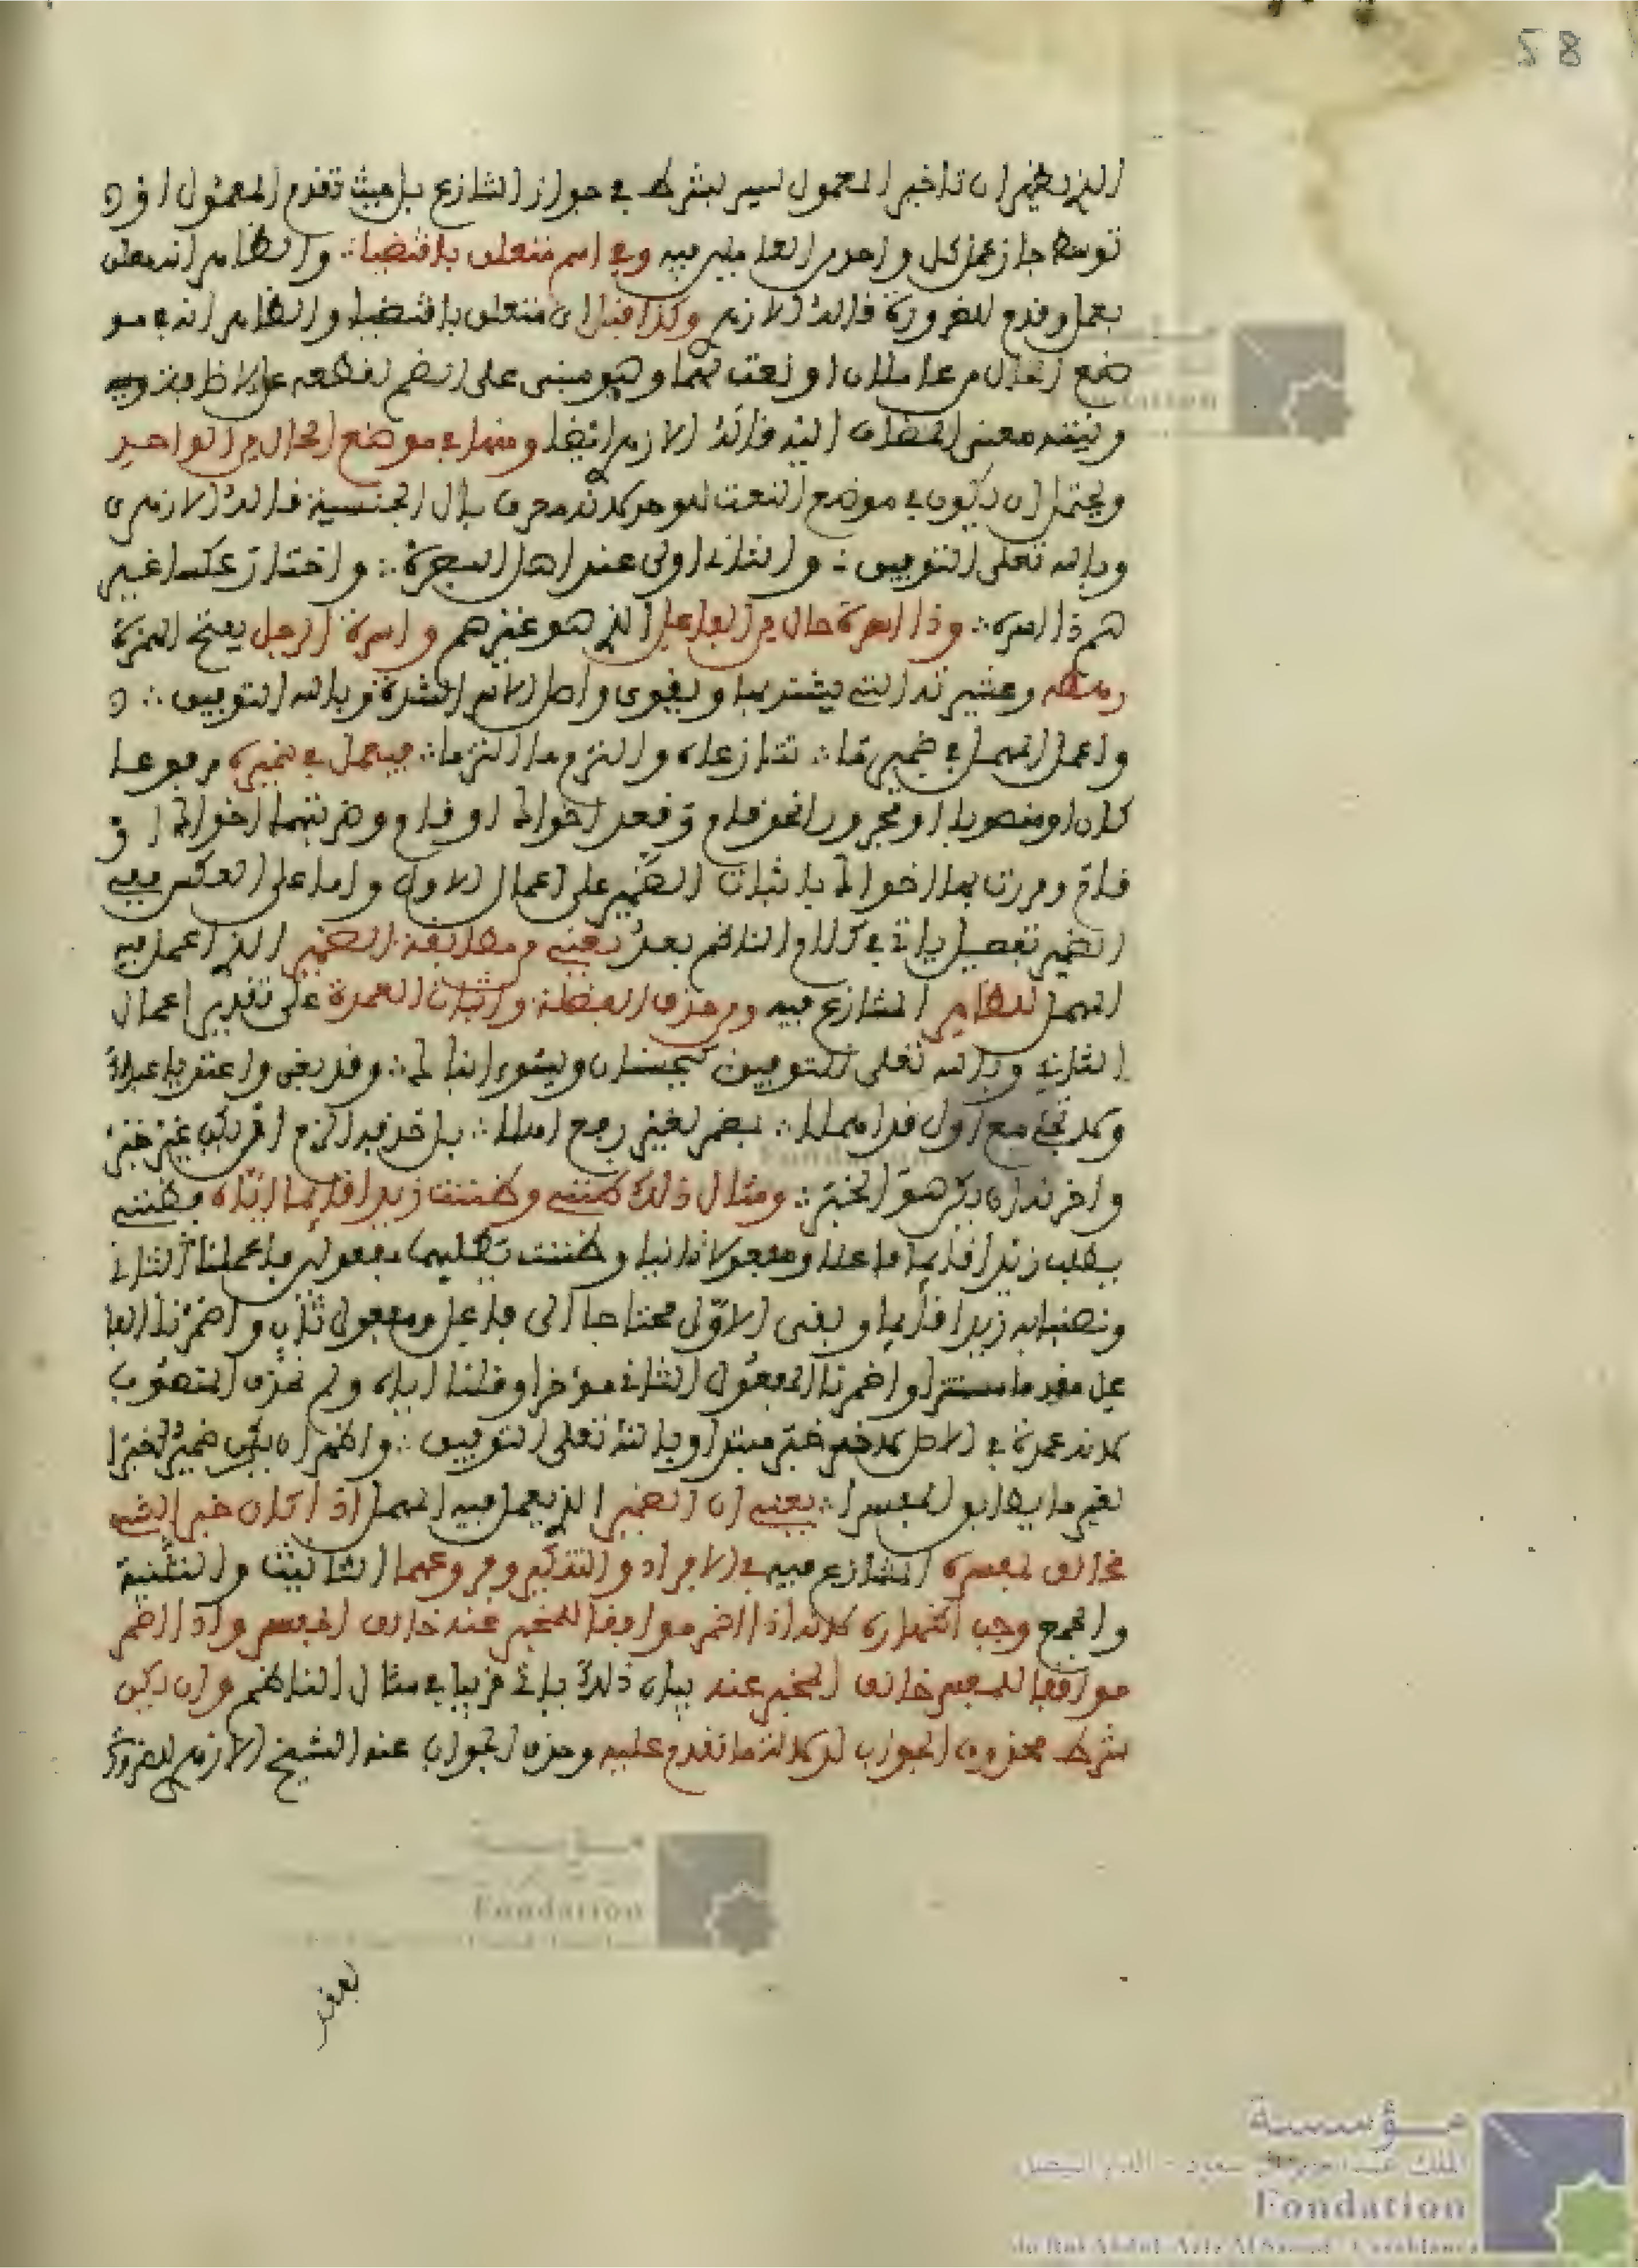 58
الذي يظهر ان تاخير المعمول ليس بشرط في جواز التنازع بل حيث تقدم المعمول او
توسط جاز عمل كل واحد من العاملين فيه وفي اسم متعلق باقتضيا ∴ والظاهر انه متعلق
بعمل وقدم للضرورة قاله الازهري وكذا قبل اي متعلق باقتضيا والظاهر انه في مو
ضع الحال من عاملان او نعت لهما وهو مبني على الضم لقطعه عن الاضافة
ونية معنى المضاف اليه قاله الازهري ايضا ومنهما في موضع الحال من الواحد
ويحتمل ان يكون في موضع النعت للوحد لانه معرف بال الجنسية قاله الازهري
وبالله تعلى التوفيق ∴ والثان اولى عند اهل البصرة ∴ واختار عكسا غير
هم ذا اسره ∴ وذا اسرة حال من الفاعل الذي هو غيرهم واسرة الرجل بفتح الهمزة
رهطه وعشيرته التي يشتد بها ويقوى واصل الاسر الشدة وبالله التوفيق ∴
واعمل المهمل في ضمير ما ∴ تنازعاه والتزم ما التزما ∴ فيعمل في ضميره مرفوعا
كان او منصوبا او مجرورا نحو قام وقعد اخواك او قام وضربتهما اخواك او
قام ومررت بهما اخواك باثبات الضمير على اعمال الاول واما على العكس ففي
الضمير تفصيل ياتي في كلام الناظم بعد يعني ومطابقة الضمير الذي اعمل فيه
المهمل للظاهر المتنازع فيه ومن حذف الفضلة واثبات العمدة على تقدير اعمال
الثاني وبالله تعلى التوفيق كيحسنان ويسيء ابناكا ∴ وقد بغى واعتديا عبداكا
ولا تجئ مع اول قد اهملا ∴ بمضمر لغير رفع اوهلا ∴ بل حذفه الزم ان يكن غير خبر
واخرنه ان يكن هو الخبر ∴ ومثال ذلك ظنني وظننت زيدا قائما اياه فظنني
يطلب زيدا قائما فاعلا ومفعولا ثانيا وظننت يطلبهما مفعولين فاعملنا الثاني
ونصبنا به زيدا قائما وبقي الاول محتاجا الى فاعل ومفعول ثان واضمرنا الفا
عل مقدما مستترا واضمرنا المفعول الثاني مؤخرا وقلنا اياه ولم نحذف المنصوب
لانه عمدة في الاصل لانه خبر مبتدا وبالله تعلى التوفيق ∴ واظهر ان يكن ضمير خبرا
لغير ما يطابق المفسرا ∴ يعني ان الضمير الذي يعمل فيه المهمل اذا كان خبرا لشيء
مخالف لمفسره المتنازع فيه في الافراد والتذكير وفروعهما التانيث والتثنية
والجمع وجب اظهاره لانه اذا اضمر موافقا للمخبر عنه خالف المفسر واذا اضمر
موافقا للمفسر خالف المخبر عنه بيان ذلك ياتي قريبا في مثال الناظم وان يكن
شرط محذوف الجواب لدلالة ما تقدم عليه وحذف الجواب عند الشيخ الازهري للضرورة
مؤسسة
الملك عبد العزيز آل سعود - الدار البيضاء
Fondation
du Roi Abdul-Aziz Al Saoud - Casablanca